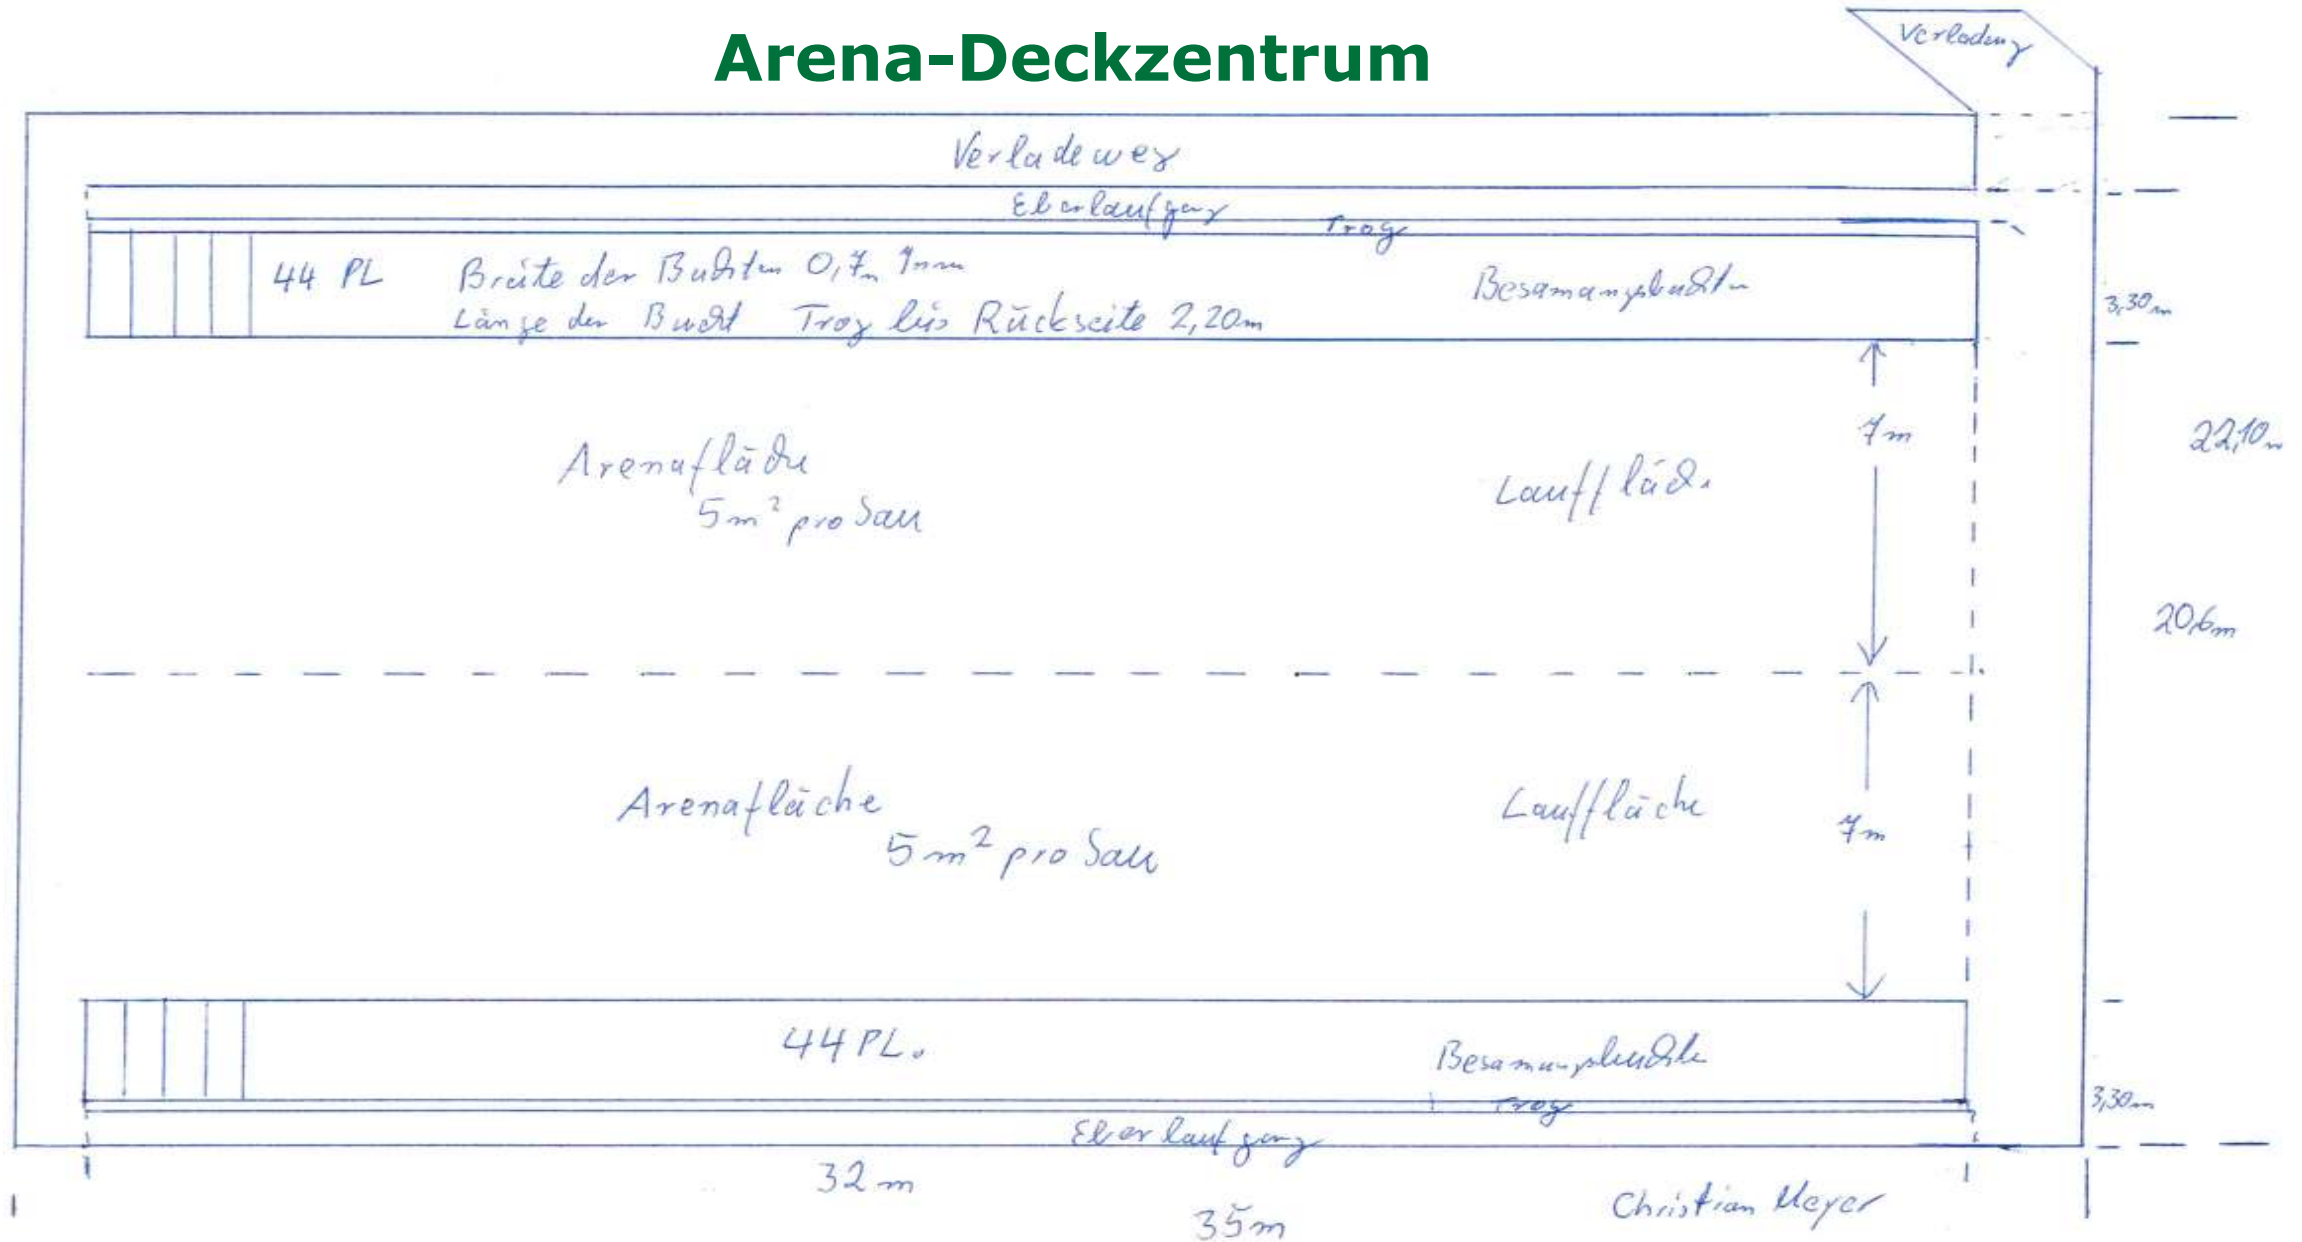 Arena-Deckzentrum
Verladung
Verladeweg
Eberlaufgang
Trog
44 PL
Breite der Buchten 0,7m
Länge der Bucht Trog bis Rückseite 2,20m
Besamungsbuchten
3,30m
7m
22,10m
Arenafläche
5m² pro Sau
Lauffläche
20,6m
Arenafläche
5m² pro Sau
Lauffläche
7m
44 PL.
Besamungsbuchten
Trog
3,30m
Eberlaufgang
32m
35m
Christian Meyer